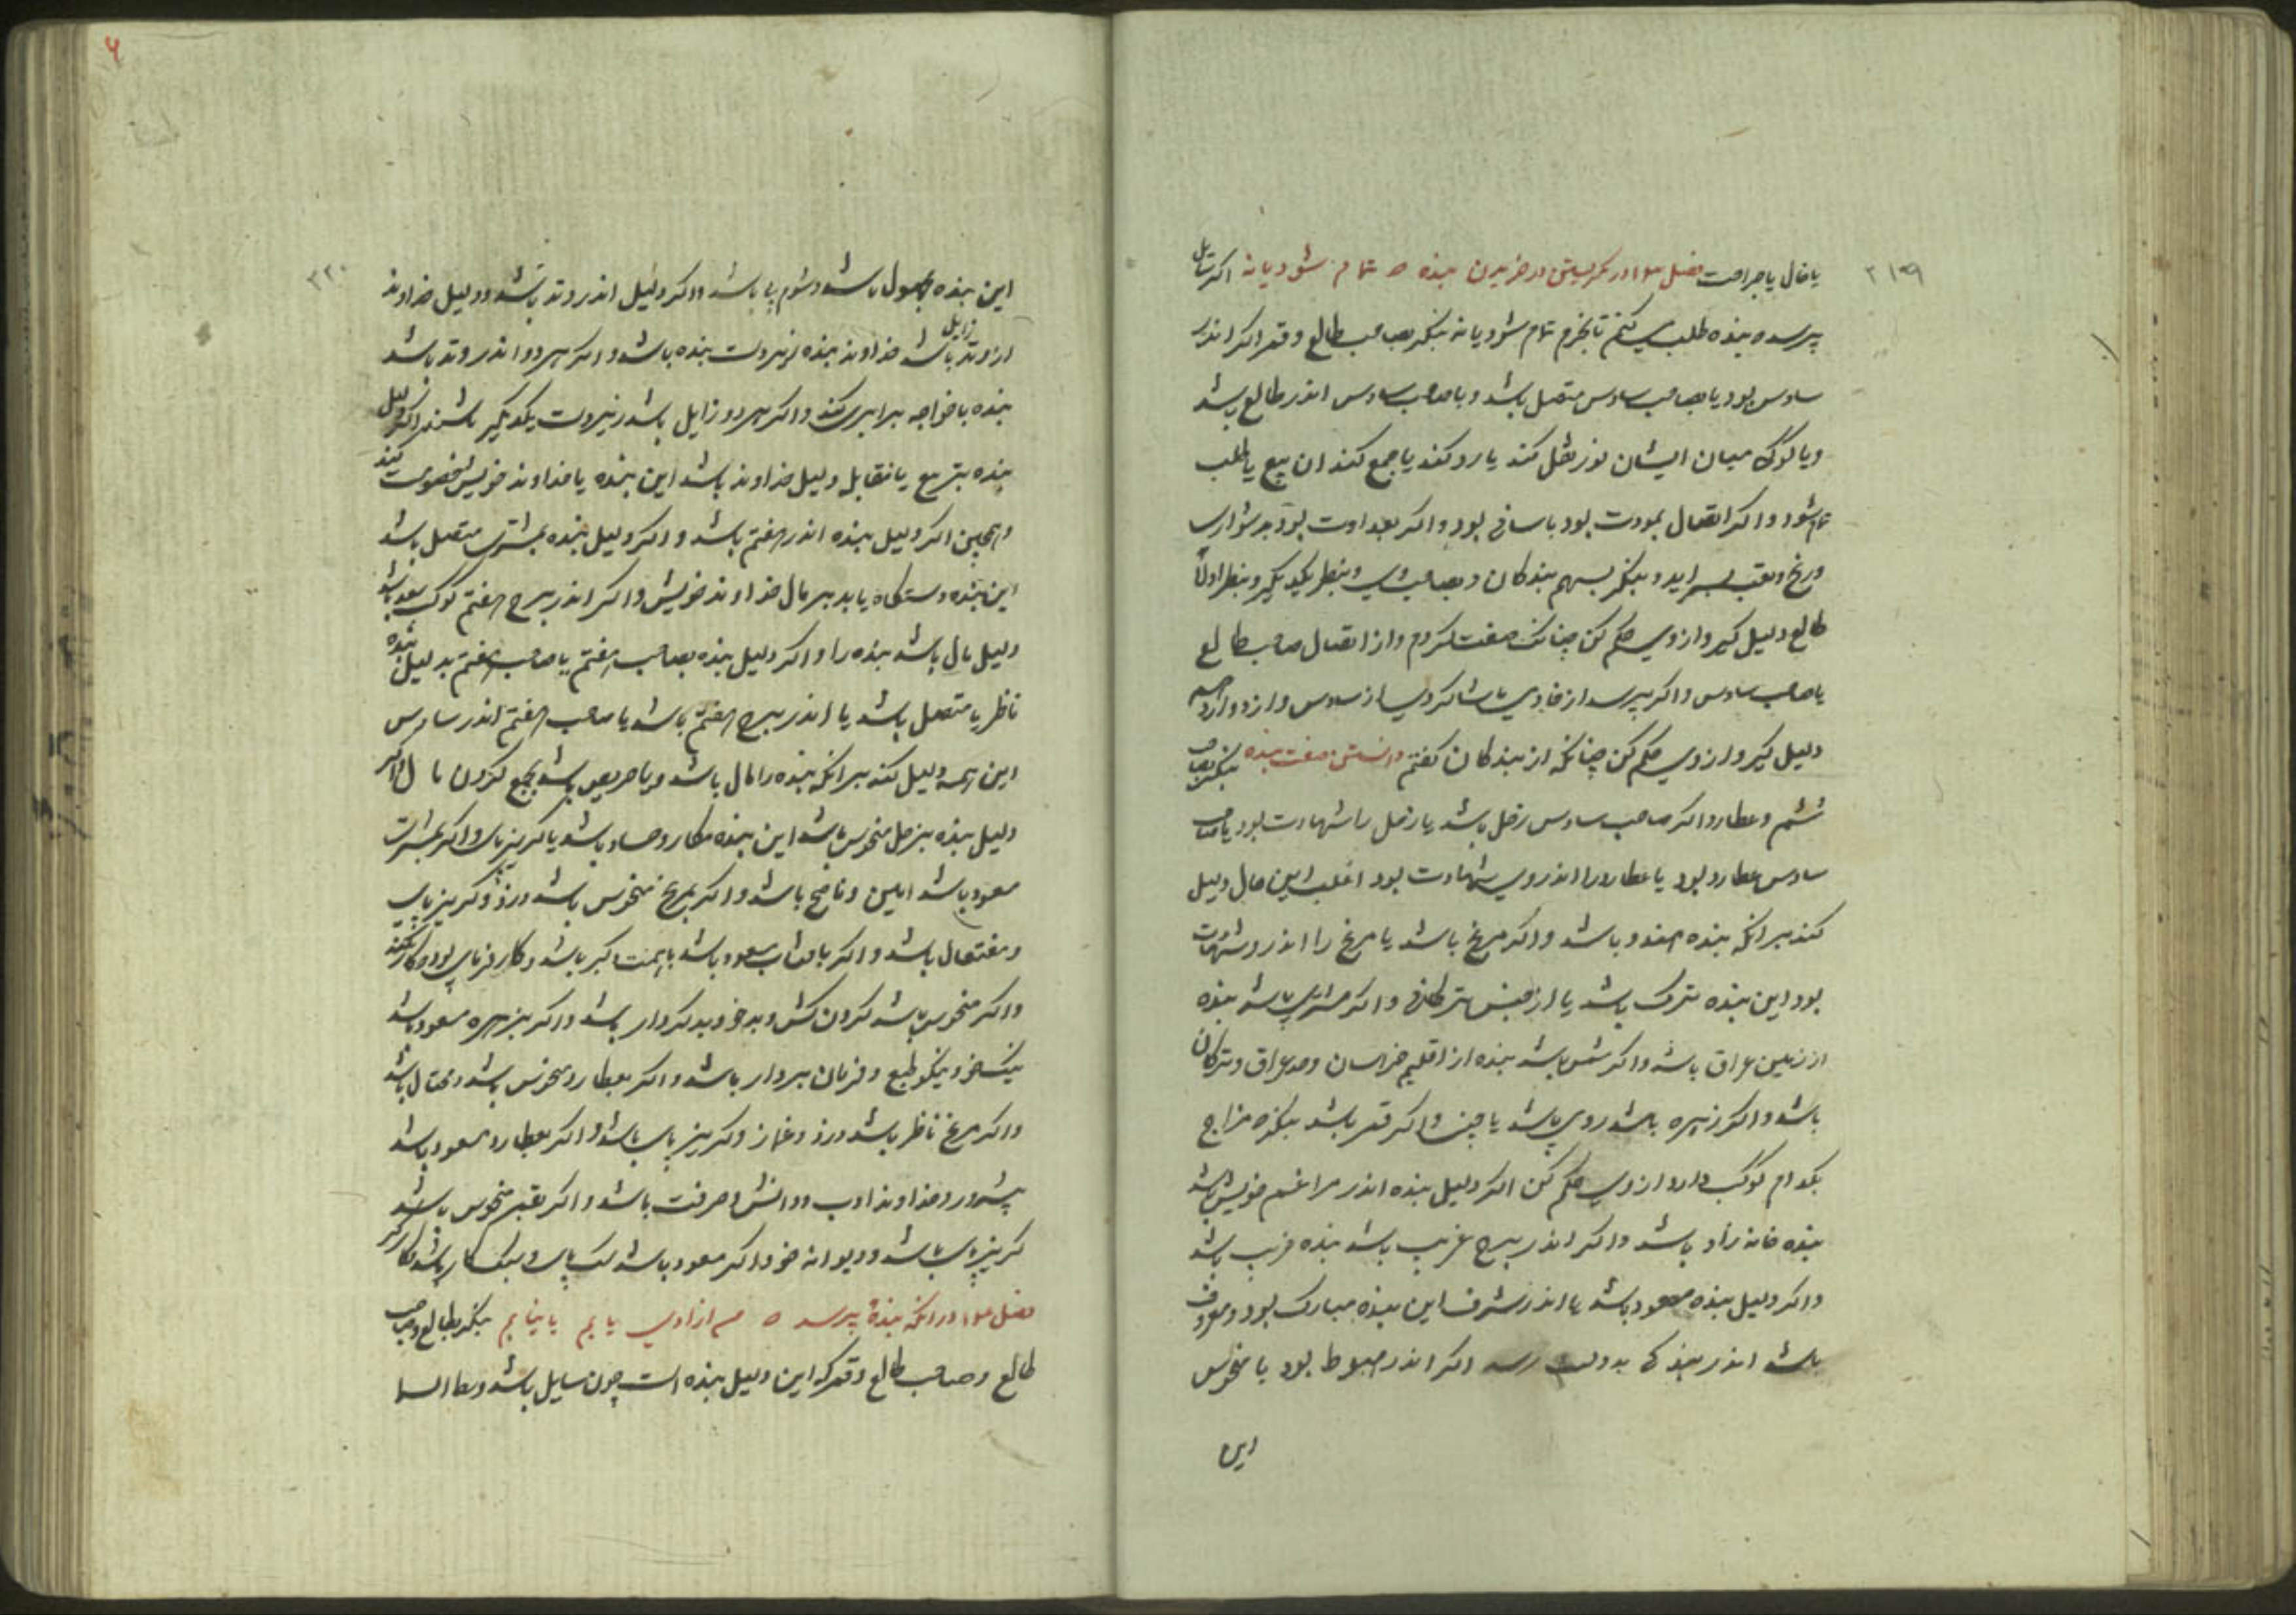 ۲۱۹
یا خال یا جراحت فصل ۱۳ در نکریستن در خریدن بنده ه تمام شود یا نه اکر سایل
پرسد بنده طلب میکنم تا بخرم تمام شود یا نه بنکر بصاحب طالع و قمر اکر اندر
سادس بود یا بصاحب سادس متصل باشد و یا صاحب سادس اندر طالع باشد
و یا کوکبی میان ایشان نور نقل کند یا رد کند یا جمع کند ان بیع یا طلب
تمام شود و اکر اتصال بمودت بود باسانی بود و اکر بعداوت بود بدشواری
و رنج و تعب براید و بنکر بسهم بندکان و بصاحب وی و بنظر یکدیکر و بنظر اولاً
طالع دلیل کیر و از وی حکم کن چنانک صفت کردم و از اتصال صاحب طالع
یا صاحب سادس و اکر بپرسد از خادمی یا شاکردی از سادس و از دوازدهم
دلیل کیر و از وی حکم کن چنانکه از بندکان کفتم دانستن صفت بنده بنکر بصاحب
ششم و عطارد اکر صاحب سادس زحل باشد یا زحل را شهادت بود یا صاحب
سادس عطارد بود یا عطارد را اندر وی شهادت بود اغلب این حال دلیل
کند برانکه بنده هندو باشد و اکر مریخ باشد یا مریخ را اندرو شهادت
بود این بنده ترک باشد یا از جنس ترکان و اکر مشتری باشد بنده
از زمین عراق باشد و اکر شمس باشد بنده از اقلیم خراسان و حد عراق و ترکان
باشد و اکر زهره باشد رومی باشد یا چین و اکر قمر باشد بنکر مزاج
بکدام کوکب دارد از وی حکم کن اکر دلیل بنده اندر مراغم خویش باشد
بنده خانه زاد باشد و اکر اندر برج غریب باشد بنده غریب باشد
و اکر دلیل بنده مسعود باشد یا اندر شرف این بنده مبارک بود و معروف
باشد اندر بندکی بدولت رسد اکر اندر هبوط بود یا منحوس
این
۶
۲۲۰
این بنده مجهول باشد و شوم پی باشد و اکر دلیل اندر وتد باشد و دلیل خداوند
از وتد زایل باشد خداوند بنده زیردست بنده باشد و اکر هر دو اندر وتد باشد
بنده با خواجه برابری کند و اکر هر دو زایل باشد زیردست یکدیکر باشند و اکر دلیل
بنده بتربیع یا مقابل دلیل خداوند باشد این بنده با خداوند خویش خصومت کند
و همچنین اکر دلیل بنده اندر هفتم باشد و اکر دلیل بنده بمشتری متصل باشد
این بنده دستکاه یابد بر مال خداوند خویش و اکر اندر برج هفتم کوکب سعد باشد
دلیل مال باشد بنده را و اکر دلیل بنده بصاحب هفتم یا صاحب هفتم بدلیل بنده
ناظر یا متصل باشد یا اندر برج هفتم باشد یا صاحب هفتم اندر سادس
این همه دلیل کند برانکه بنده را مال باشد و یا حریص باشد بجمع کردن مال و اکر
دلیل بنده بزحل منحوس باشد این بنده مکار و حسود باشد یا کریزپای و اکر بمشتری
مسعود باشد امین و ناصح باشد و اکر بمریخ منحوس باشد دزد و کریزپای
و مفتعال باشد و اکر بافتاب مسعود باشد با همت اکبر باشد و کارفرمای بود و کار کند
و اکر منحوس باشد کردن کش و بدخو و بدکردار باشد و اکر بزهره مسعود باشد
نیکخو و نیکو طبع و فرمان بردار باشد و اکر بعطارد منحوس باشد و محتال باشد
و اکر مریخ ناظر باشد دزد و غماز و کریزپای باشد و اکر بعطارد مسعود باشد
پیشه‌ور و خداوند ادب و دانش و حرفت باشد و اکر بقمر منحوس باشد
کریزپای باشد و دیوانه خو و اکر مسعود باشد سبک پای و سبک کار باشد
فصل ۱۴ در انکه بنده پرسد ه من ازادی یابم یا نیابم بنکر بطالع و صاحب
طالع و صاحب طالع و قمر که این دلیل بنده است چون سایل باشد وسط السما